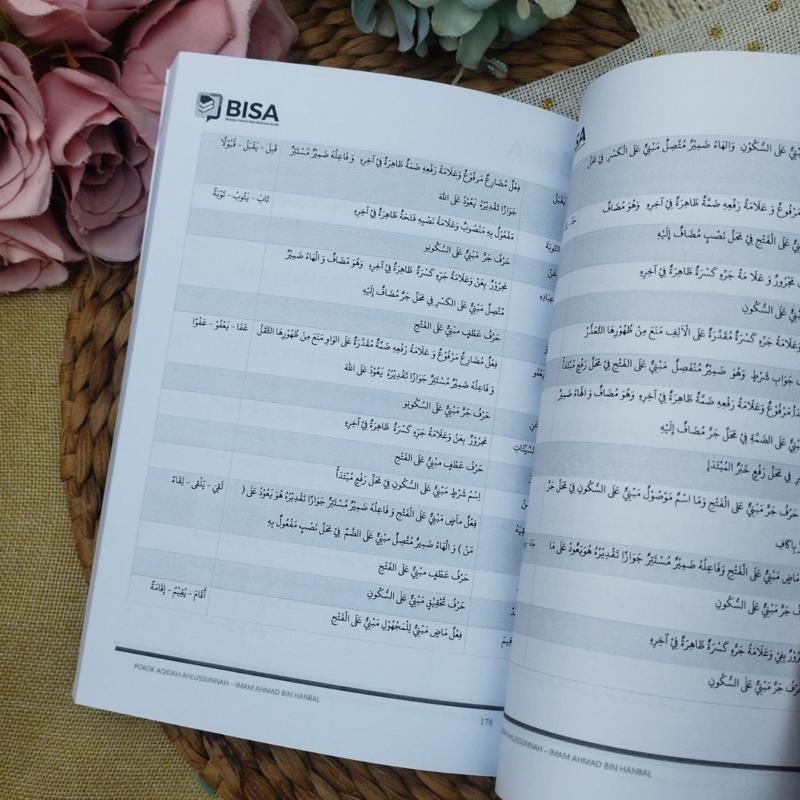 BISA
يَقْبَلُ فِعْلٌ مُضَارِعٌ مَرْفُوعٌ وَعَلَامَةُ رَفْعِهِ ضَمَّةٌ ظَاهِرَةٌ فِيْ آخِرِهِ وَ فَاعِلُهُ ضَمِيْرٌ مُسْتَتِرٌ قَبِلَ - يَقْبَلُ - قَبُوْلًا
جَوَازًا تَقْدِيْرُهُ يَعُوْدُ عَلَى اللهُ
التَّوْبَةَ مَفْعُوْلٌ بِهِ مَنْصُوْبٌ وَعَلَامَةُ نَصْبِهِ فَتْحَةٌ ظَاهِرَةٌ فِيْ آخِرِهِ تَابَ - يَتُوْبُ - تَوْبَةً
عَنْ حَرْفُ جَرٍّ مَبْنِيٌّ عَلَى السُّكُوْنِو
عِبَادِهِ مَجْرُوْرٌ بِعَنْ وَعَلَامَةُ جَرِّهِ كَسْرَةٌ ظَاهِرَةٌ فِيْ آخِرِهِ وَهُوَ مُضَافٌ وَ الْهَاءُ ضَمِيْرٌ
مُتَّصِلٌ مَبْنِيٌّ عَلَى الْكَسْرِ فِي مَحَلِّ جَرٍّ مُضَافٌ إِلَيْهِ
وَ حَرْفُ عَطْفٍ مبْنِيٌّ عَلَى الْفَتْحِ
يَعْفُو فِعْلٌ مُضَارِعٌ مَرْفُوعٌ وَ عَلَامَةُ رَفْعِهِ ضَمَّةٌ مُقَدَّرَةٌ عَلَى الْوَاوِ مَنَعَ مِنْ ظُهُوْرِهَا الثِّقَلُ عَفَا - يَعْفُوْ - عَفْوًا
وَ فَاعِلُهُ ضَمِيْرٌ مُسْتَتِرٌ جَوَازًا تَقْدِيْرُهُ يَعُوْدُ عَلَى اللهُ
عَنِ حَرْفُ جَرٍّ مَبْنِيٌّ عَلَى السُّكُوْنِو
السَّيِّئَاتِ مَجْرُوْرٌ بِعَنْ وَعَلَامَةُ جَرِّهِ كَسْرَةٌ ظَاهِرَةٌ فِيْ آخِرِهِ
حَرْفُ عَطْفٍ مبْنِيٌّ عَلَى الْفَتْحِ
اِسْمُ شَرْطٍ مَبْنِيٌّ عَلَى السُّكُونِ فِي مَحَلِّ رَفْعٍ مُبْتَدَأٌ
فِعْلٌ مَاضٍ مَبْنِيٌّ عَلَى الْفَتْحِ وَ فَاعِلُهُ ضَمِيْرٌ مُسْتَتِرٌ جَوَازًا تَقْدِيْرُهُ هُوَ يَعُوْدُ عَلَى ( لَقِيَ - يَلْقَى - لِقَاءً
مَنْ ) وَ الْهَاءُ ضَمِيْرٌ مُتَّصِلٌ مبْنِيٌّ عَلَى الضَّمِّ فِيْ مَحَلِّ نَصْبٍ مَفْعُوْلٌ بِهِ
حَرْفُ عَطْفٍ مبْنِيٌّ عَلَى الْفَتْحِ
حَرْفُ تَحْقِيْقٍ مَبْنِيٌّ عَلَى السُّكُوْنِ
فِعْلٌ مَاضٍ مَبْنِيٌّ لِلْمَجْهُوْلِ مَبْنِيٌّ عَلَى الْفَتْحِ أَقَامَ - يُقِيْمُ - إِقَامَةً
POKOK AQIDAH AHLUSSUNNAH – IMAM AHMAD BIN HANBAL
178
عَلَى السُّكُوْنِ وَالْهَاءُ ضَمِيْرٌ مُتَّصِلٌ مَبْنِيٌّ عَلَى الْكَسْرِ فِيْ مَحَلِّ
مَرْفُوْعٌ وَ عَلَامَةُ رَفْعِهِ ضَمَّةٌ ظَاهِرَةٌ فِيْ آخِرِهِ وَهُوَ مُضَافٌ
عَلَى الْفَتْحِ فِيْ مَحَلِّ نَصْبٍ مُضَافٌ إِلَيْهِ
مَجْرُوْرٌ وَ عَلَا مَةُ جَرِّهِ كَسْرَةٌ ظَاهِرَةٌ فِيْ آخِرِهِ
عَلَى السُّكُوْنِ
وَعَلَامَةُ جَرِّهِ كَسْرَةٌ مُقَدَّرَةٌ عَلَى الْاَلِفِ مَنَعَ مِنْ ظُهُوْرِهَا التَّعَذُّرُ
جَوَابِ شَرْطٍ وَهُوَ ضَمِيْرٌ مُنْفَصِلٌ مَبْنِيٌّ عَلَى الْفَتْحِ فِيْ مَحَلِّ رَفْعٍ مُبْتَدَأٌ
مَرْفُوْعٌ وَعَلَامَةُ رَفْعِهِ ضَمَّةٌ ظَاهِرَةٌ فِيْ آخِرِهِ وَهُوَ مُضَافٌ وَالْهَاءُ ضَمِيْرٌ
عَلَى الضَّمَّةِ فِيْ مَحَلِّ جَرٍّ مُضَافٌ إِلَيْهِ
فِيْ مَحَلِّ رَفْعٍ خَبَرُ الْمُبْتَدَإِ
حَرْفُ جَرٍّ مَبْنِيٌّ عَلَى الْفَتْحِ وَمَا اِسْمٌ مَوْصُوْلٌ مَبْنِيٌّ عَلَى السُّكُوْنِ فِيْ مَحَلِّ جَرٍّ
بِالْكَافِ
مَاضٍ مَبْنِيٌّ عَلَى الْفَتْحِ وَفَاعِلُهُ ضَمِيْرٌ مُسْتَتِرٌ جَوَازًا تَقْدِيْرُهُ هُوَيَعُوْدُ عَلَى مَا
جَرٍّ مَبْنِيٌّ عَلَى السُّكُوْنِ
بِفِيْ وَعَلَامَةُ جَرِّهِ كَسْرَةٌ ظَاهِرَةٌ فِيْ آخِرِهِ
حَرْفُ جَرٍّ مَبْنِيٌّ عَلَى السُّكُوْنِ
AHLUSSUNNAH – IMAM AHMAD BIN HANBAL